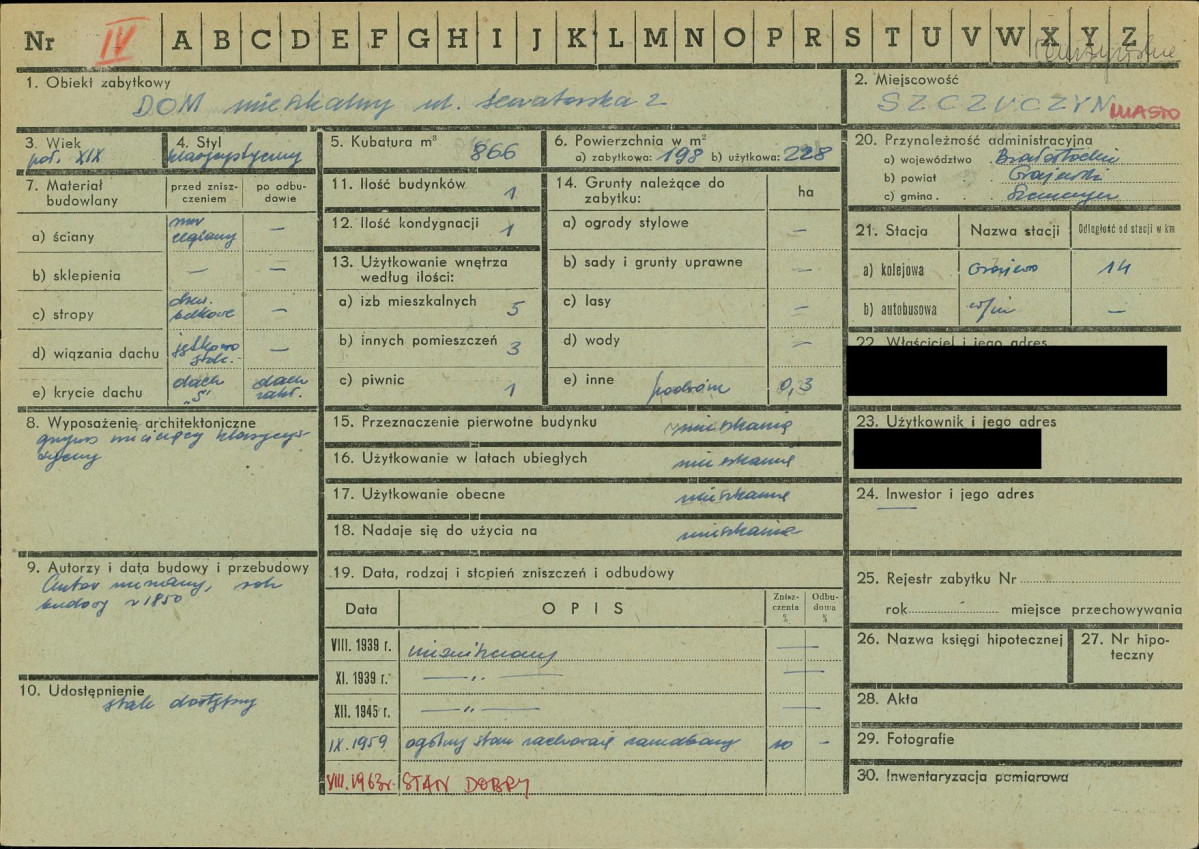 Nr IV A B C D E F G H I J K L M N O P R S T U V W X Y Z
1. Obiekt zabytkowy
DOM mieszkalny ul. Senatorska 2
2. Miejscowość
SZCZUCZYN MIASTO
3. Wiek
poł. XIX
4. Styl
klasycystyczny
5. Kubatura m³ 866
6. Powierzchnia w m²
a) zabytkowa: 198 b) użytkowa: 228
7. Materiał budowlany
przed zniszczeniem
po odbudowie
a) ściany mur ceglany —
b) sklepienia — —
c) stropy drew. belkowe —
d) wiązania dachu jętkowo stolc. —
e) krycie dachu dach. „S" dach. zakł.
8. Wyposażenie architektoniczne
gzyms wieńczący klasycystyczny
9. Autorzy i data budowy i przebudowy
Autor nieznany, rok
budowy r 1850
10. Udostępnienie
stale dostępny
11. Ilość budynków 1
12. Ilość kondygnacji 1
13. Użytkowanie wnętrza
według ilości:
a) izb mieszkalnych 5
b) innych pomieszczeń 3
c) piwnic 1
14. Grunty należące do
zabytku: ha
a) ogrody stylowe —
b) sady i grunty uprawne —
c) lasy —
d) wody —
e) inne podwórze 0,3
15. Przeznaczenie pierwotne budynku mieszkanie
16. Użytkowanie w latach ubiegłych mieszkanie
17. Użytkowanie obecne mieszkanie
18. Nadaje się do użycia na mieszkanie
19. Data, rodzaj i stopień zniszczeń i odbudowy
Data OPIS Zniszczenia % Odbudowa %
VIII. 1939 r. niezniszczony —
XI. 1939 r. — „ — —
XII. 1945 r. — „ — —
IX. 1959 ogólny stan zachowania zaniedbany 10 -
VIII. 1963r. STAN DOBRY
20. Przynależność administracyjna
a) województwo Białostockie
b) powiat Grajewski
c) gmina Szczuczyn
21. Stacja Nazwa stacji Odległość od stacji w km
a) kolejowa Grajewo 14
b) autobusowa w/m —
22. Właściciel i jego adres
23. Użytkownik i jego adres
24. Inwestor i jego adres
—
25. Rejestr zabytku Nr
rok miejsce przechowywania
26. Nazwa księgi hipotecznej
27. Nr hipoteczny
28. Akta
29. Fotografie
30. Inwentaryzacja pomiarowa